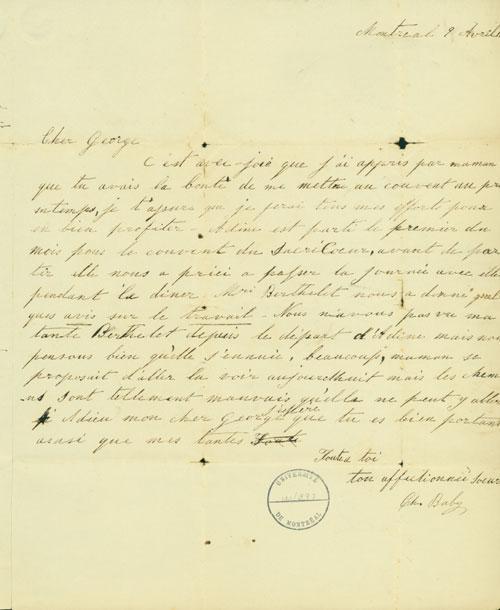 Montreal 9 Avril
Cher George
C'est avec joie que j'ai appris par maman
que tu avais la bonté de me mettre au couvent au pr
intemps, je t'assure que je ferai tous mes effort pour
en bien profiter - Adine est partie le premier du
mois pour le couvent du SacriCoeur, avant de par
tir elle nous a prici a passer la journiée avec elle
pendant la diner. Berthelot nous a donné quel
ques avis sur le travail - Nous n'avons pas vu ma
tante Berthelot depuis le départ d'Adine mais nous
pensons bien qu'elle s'ennuie, beaucoup, maman se
proposait d'aller la voir aujourdhuit mais les chem
ns sont tellement mauvais qu'elle ne peut y aller
Adieu mon cher George j'espère que tu es bien portant
ausi que mes tantes
Toute a toi
ton affectionnée soeur
Ch. Baby
UNIVERSITÉ
DE MONTRÉAL